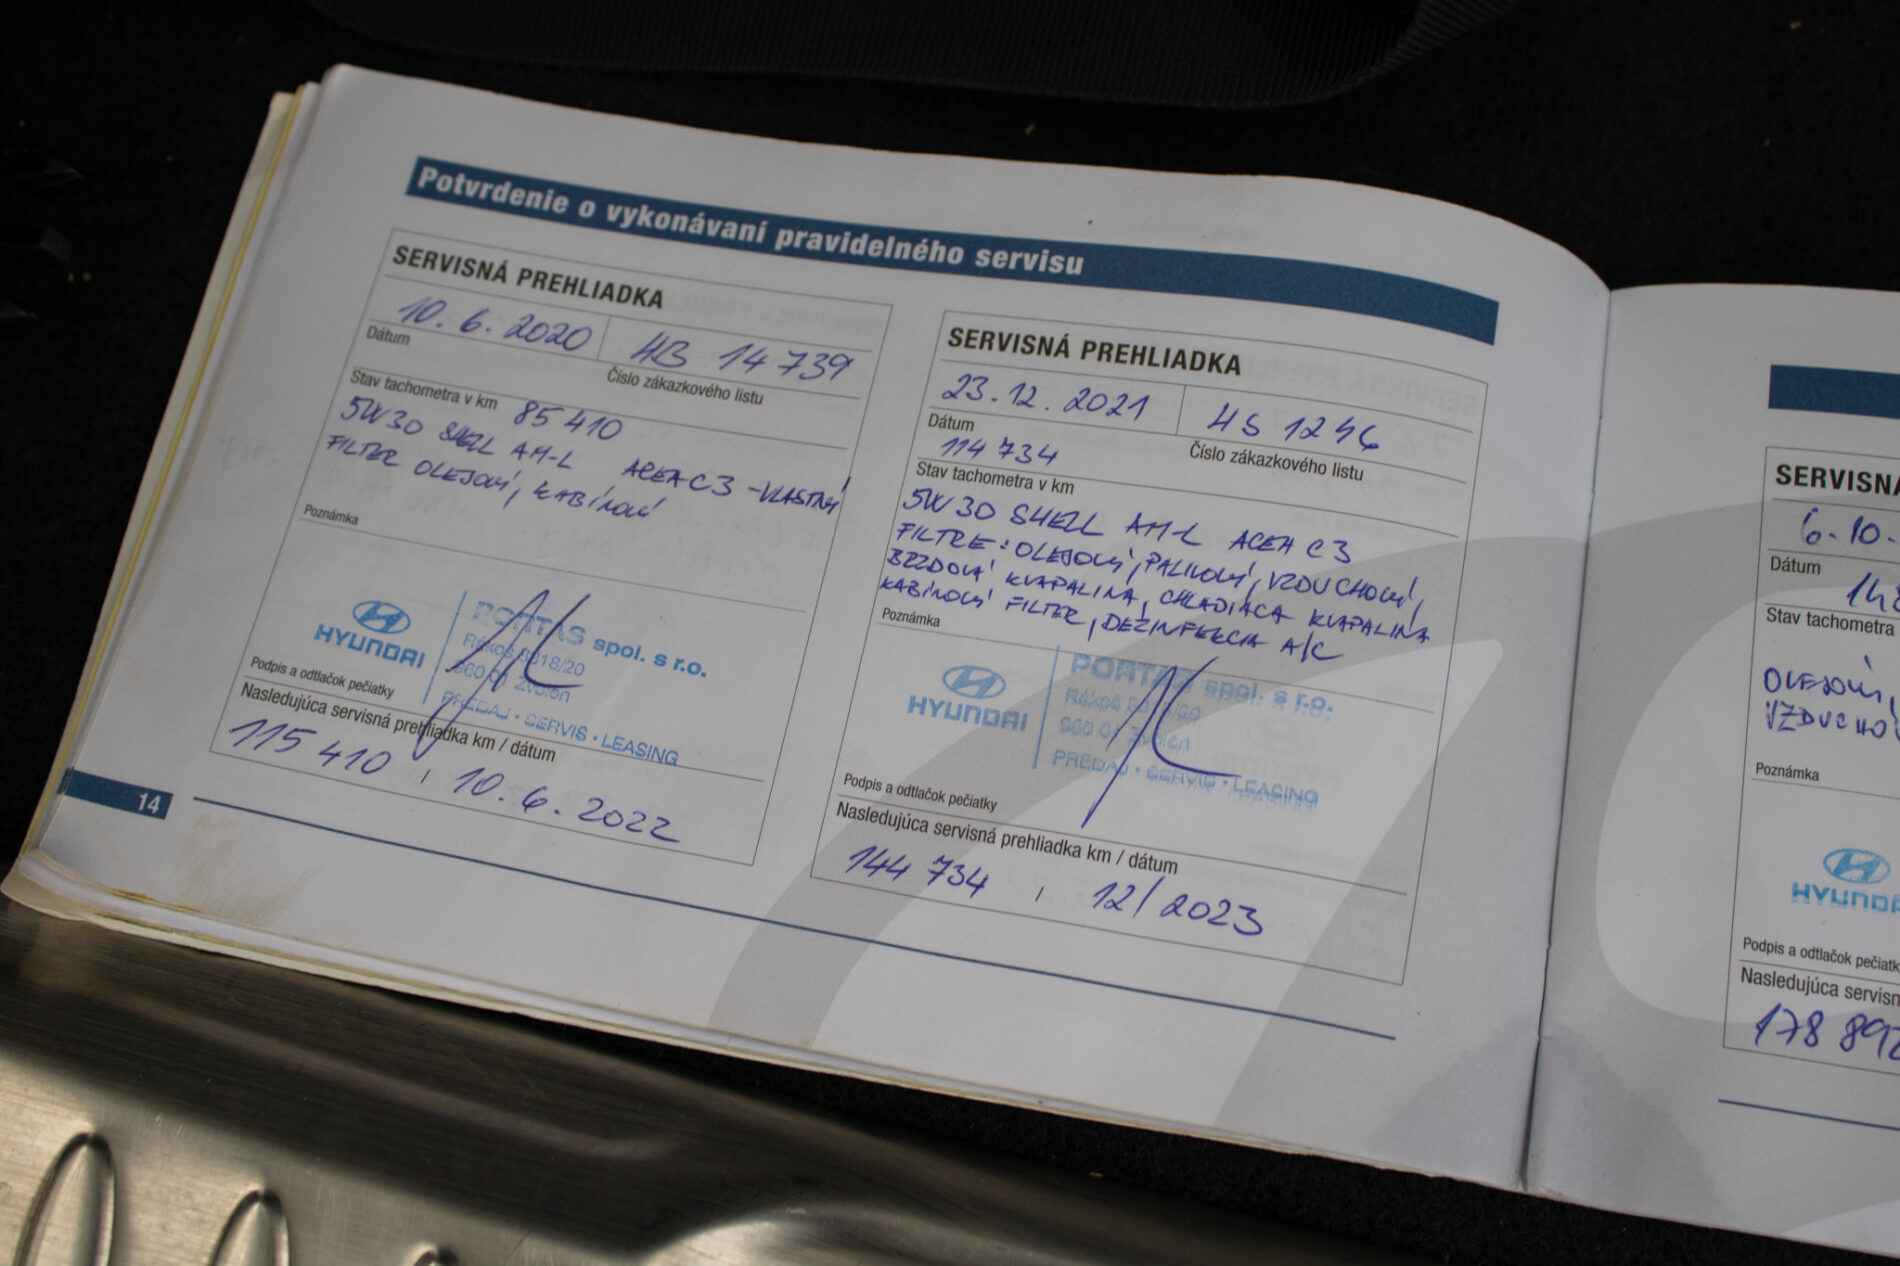 Potvrdenie o vykonávaní pravidelného servisu
SERVISNÁ PREHLIADKA
10. 6. 2020 4B 14 739
Dátum Číslo zákazkového listu
Stav tachometra v km 85 410
5W30 SHELL AM-L ACEA C3 - VLASTNÝ
FILTER OLEJOVÝ, KABÍNOVÝ
Poznámka
HYUNDAI
PORTAS spol. s r.o.
Rákoš 8818/20
960 01 Zvolen
PREDAJ • SERVIS • LEASING
Podpis a odtlačok pečiatky
Nasledujúca servisná prehliadka km / dátum
115 410 / 10. 6. 2022
14
SERVISNÁ PREHLIADKA
23. 12. 2021 4S 1246
Dátum Číslo zákazkového listu
114 734
Stav tachometra v km
5W30 SHELL AM-L ACEA C3
FILTRE: OLEJOVÝ, PALIVOVÝ, VZDUCHOVÝ,
BRZDOVÁ KVAPALINA, CHLADIACA KVAPALINA
KABÍNOVÝ FILTER, DEZINFEKCIA A/C
Poznámka
HYUNDAI
PORTAS spol. s r.o.
960 01 Zvolen
PREDAJ • SERVIS • LEASING
Podpis a odtlačok pečiatky
Nasledujúca servisná prehliadka km / dátum
144 734 / 12/2023
SERVISNÁ
6. 10.
Dátum
Stav tachometra
OLEJOVÝ,
Poznámka
HYUNDAI
Podpis a odtlačok
Nasledujúca
178